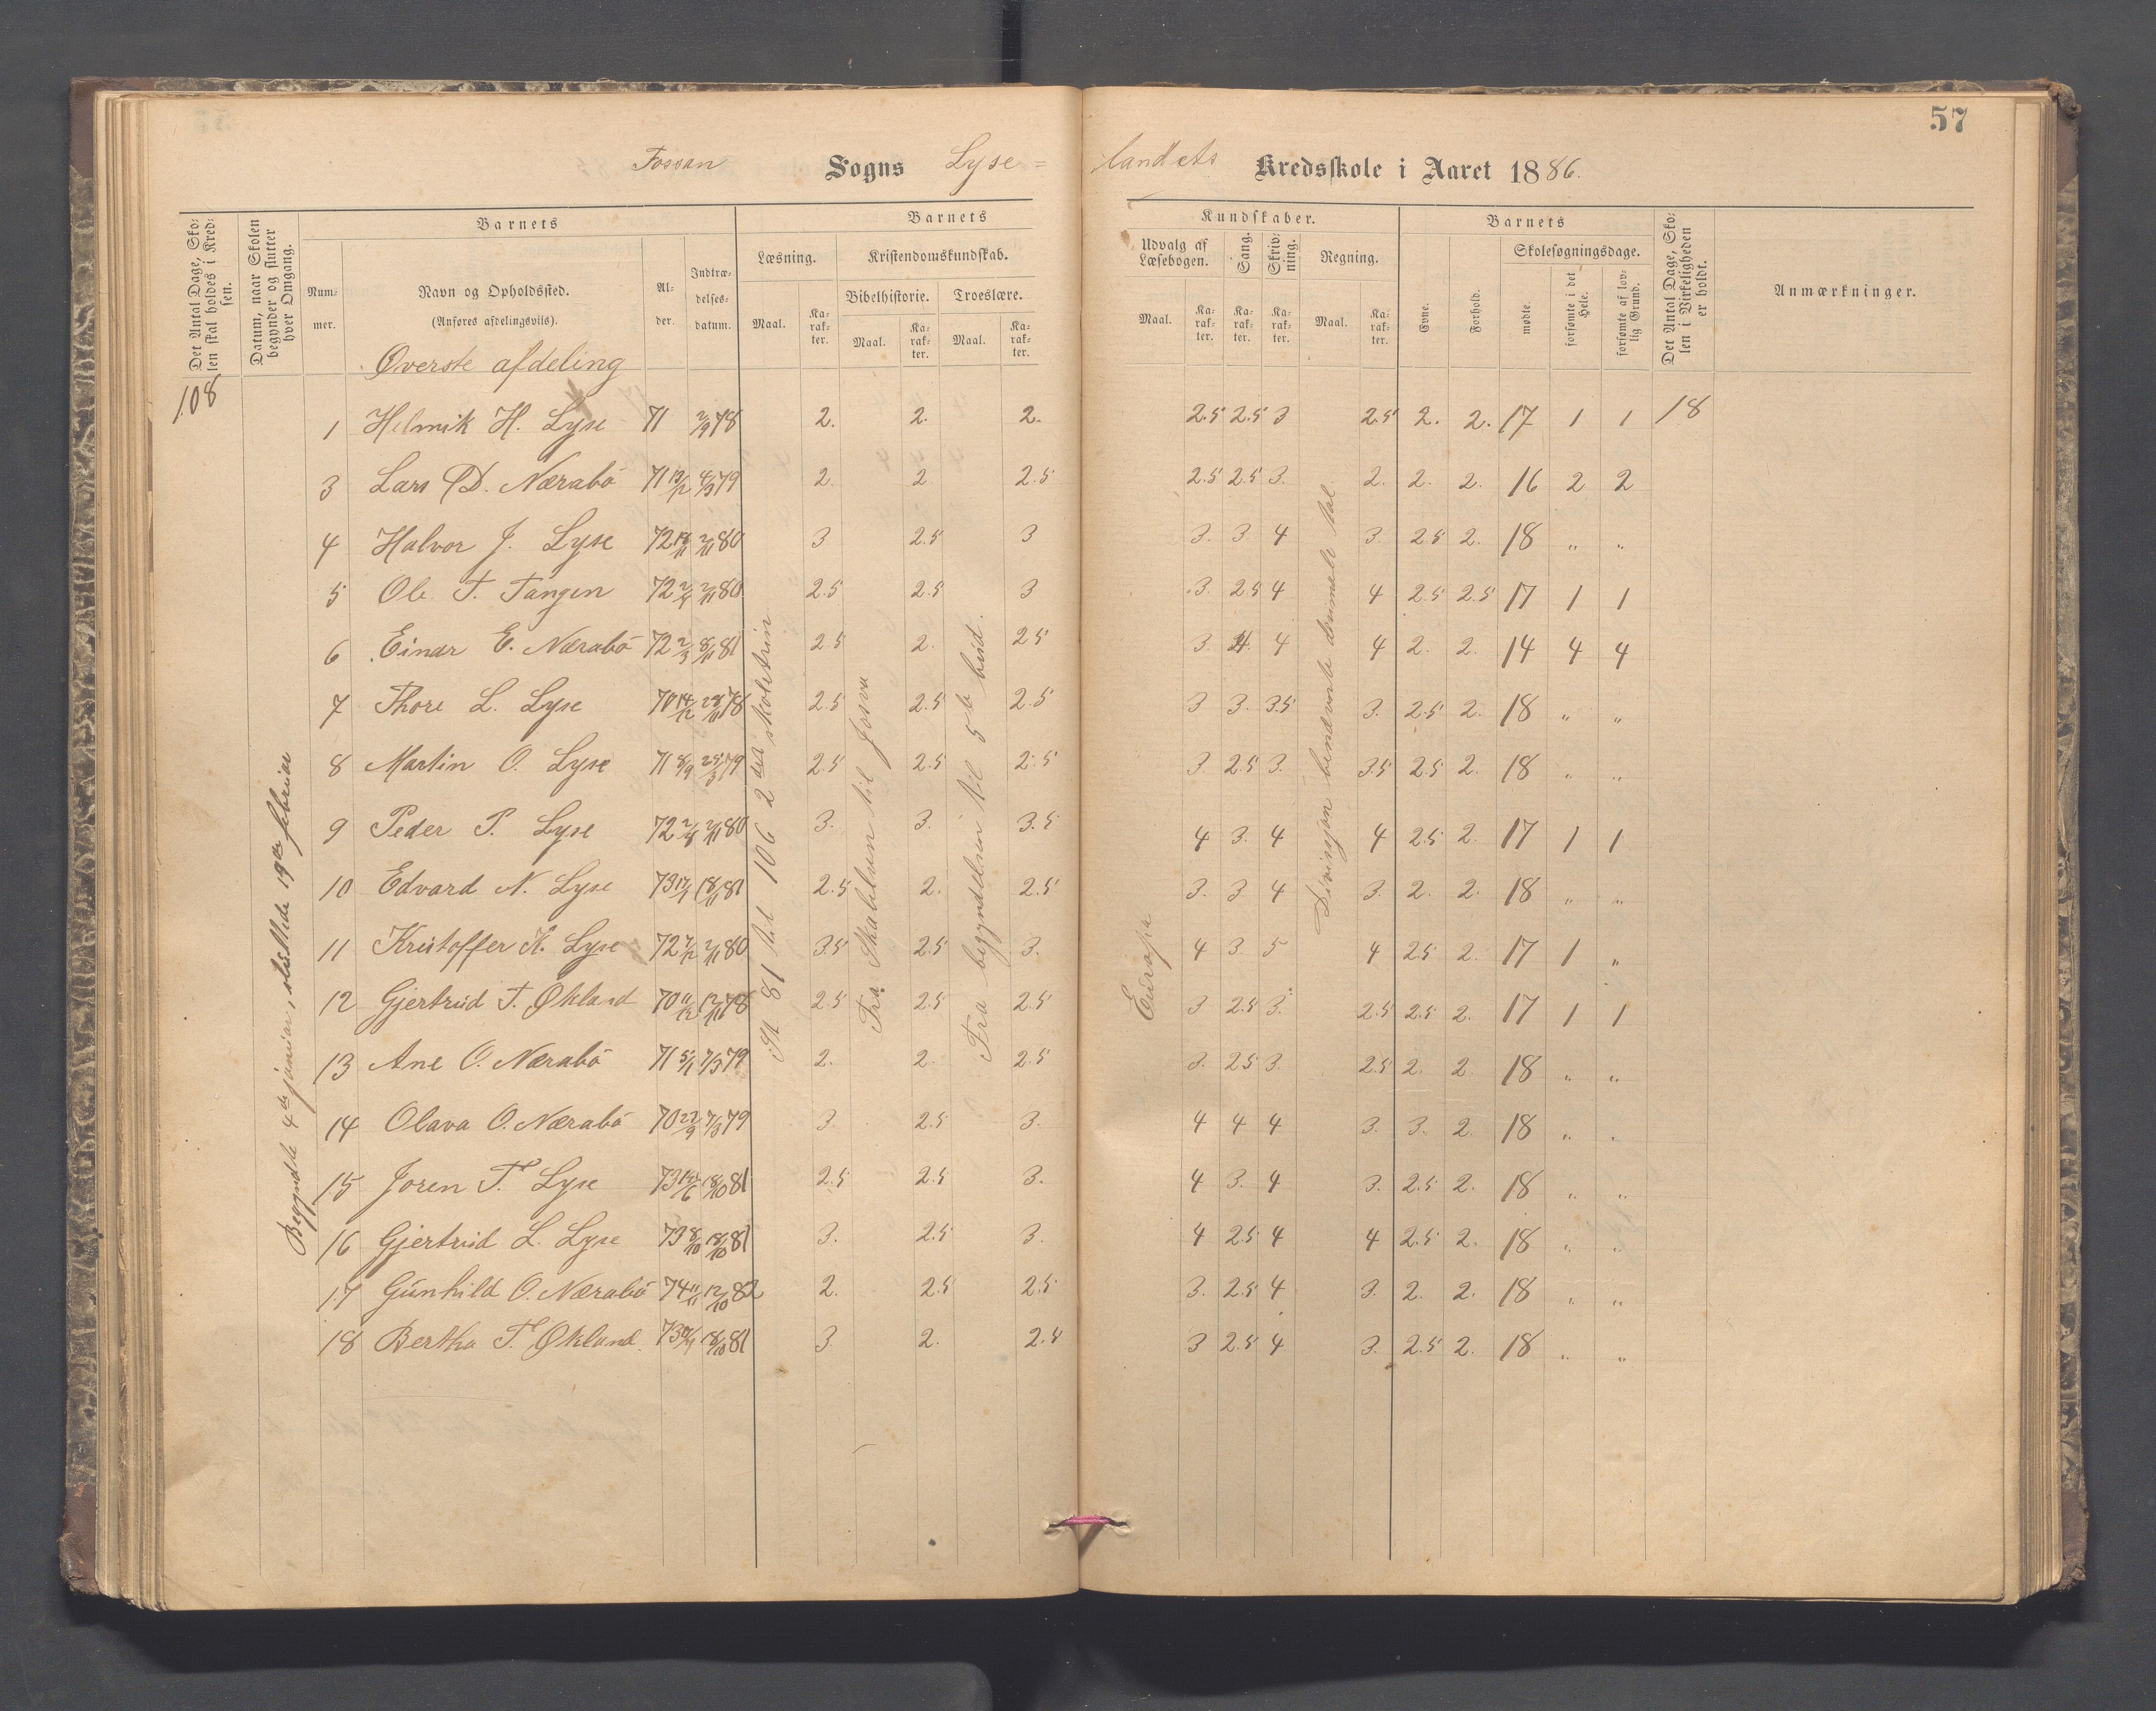 57
Fossan Sogns Lyse= landets Kredsskole i Aaret 1886.
Det Antal Dage, Skolen skal holdes i Kredsen.
Datum, naar Skolen begynder og slutter hver Omgang.
Barnets
Nummer.
Navn og Opholdssted.
(Anføres afdelingsvils).
Alder.
Indtrædelsesdatum.
Barnets
Læsning.
Maal.
Karakter.
Kristendomskundskab.
Bibelhistorie.
Maal.
Karakter.
Troeslære.
Maal.
Karakter.
Kundskaber.
Udvalg af Læsebogen.
Maal.
Karakter.
Sang.
Karakter.
Skrivning.
Karakter.
Regning.
Maal.
Karakter.
Barnets
Evne.
Forhold.
Skolesøgningsdage.
mødte.
forsømte i det Hele.
forsømte af lovlig Grund.
Det Antal Dage, Skolen i Virkeligheden er holdt.
Anmærkninger.
Øverste afdeling
108
1 Helmik H. Lyse 71 2/9 78 2. 2. 2. 2.5 2.5 3 2.5 2. 2. 17 1 1 18
3 Lars D. Nærabö 71 4/3 79 2. 2 2.5 2.5 2.5 3. 2. 2. 2. 16 2 2
4 Halvor J. Lyse 72 2/11 80 3 2.5 3 3. 3 4 3 2.5 2. 18 " "
5 Ole T. Tangen 72 2/11 80 2.5 2.5 3 3. 2.5 4 4 2.5 2.5 17 1 1
6 Einar E. Nærabö 72 2/3 8/11 81 2.5 2. 2.5 3. 4. 4 4 2. 2. 14 4 4
7 Thore L. Lyse 70 14/12 78 2.5 2.5 2.5 3 3. 3.5 3. 2.5 2. 18 " "
8 Martin O. Lyse 71 8/9 25/3 79 2.5 2.5 2.5 3. 2.5 3. 3.5 2.5 2. 18 " "
9 Peder P. Lyse 72 2/11 80 3. 3. 3.5 4 3. 4 4 2.5 2. 17 1 1
10 Edvard N. Lyse 73 18/11 81 2.5 2. 2.5 3. 3 4 3. 2. 2. 18 " "
11 Kristoffer K. Lyse 72 2/11 80 3.5 2.5 3. 4 3 5 4 2.5 2. 17 1 "
12 Gjertrud T. Økland 70 11/12 12/11 78 2.5 2.5 2.5 3 2.5 3. 2.5 2.5 2. 17 1 1
13 Ane O. Nærabö 71 5/1 7/3 79 2. 2. 2.5 3. 2.5 3. 2.5 2. 2. 18 " "
14 Olava O. Nærabö 70 7/3 79 3. 2.5 3. 4 4 4 3. 3. 2. 18 " "
15 Joren T. Lyse 73 18/10 81 2.5 2.5 3. 4 3. 4 3. 2.5 2. 18 " "
16 Gjertrud L. Lyse 73 8/10 18/10 81 3. 2.5 3. 4 2.5 4 4 2.5 2. 18 " "
17 Gunhild O. Nærabö 74 11/11 12/10 82 2. 2.5 2.5 3. 2.5 4 3. 2. 2. 18 " "
18 Bertha T. Økland. 73 18/10 81 3. 2. 2.4 3 2.5 4 3. 2.5 2. 18 " "
Begyndte 4de januar, sluttede 19de februar
St 81 til 106 2 del skoletrin
Fra Skabelsen til Josva
Fra begyndelsen til 5te bud.
Europa
Divisjon benævnte desimale tal.